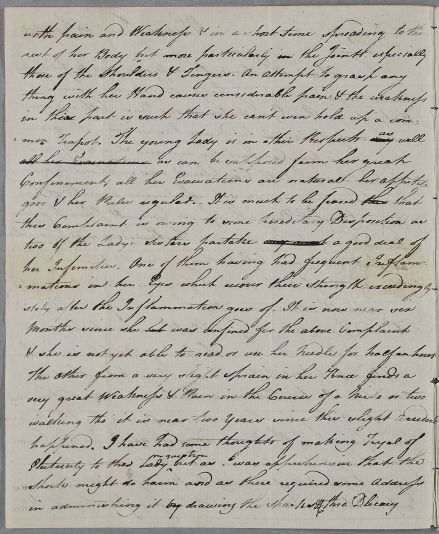 with pain and Weakness & in a short time spreading to the
rest of her Body but more particularly in the Joints especially
those of the Shoulders & Fingers. An attempt to grasp any
thing with her Hand causes considerable pain & the weakness
in this part is such that she cant even hold up a com-
-mon Teapot. The young Lady is in other Respects as well
all her Evacuations as can be supposed from her great
Confinement, all her Evacuations are natural her appetite
good & her Pulse regular. It is much to be feared that
this Complaint is owing to some hereditary Disposition as
two of the Lady's Sisters partake a good deal of
her Infirmities. One of them having had frequent Inflam-
-mations in her Eyes which recover their strength exceedingly
slowly after the Inflammation goes off. It is now near six
Months since she was confined for the above Complaint
& she is not yet able to read or use her Needle for half an hour
The other from a very slight Sprain in her Knee finds a
very great Weakness & Pain in the Course of a Mile or two
walking tho' it is near two Years since this slight Accident
happened. I have had some thoughts of making Tryal of
Electricity to this Lady in question but as I was apprehensive that the
Shocks might do harm and as there required some Address
in administering it by drawing the Sparks thro